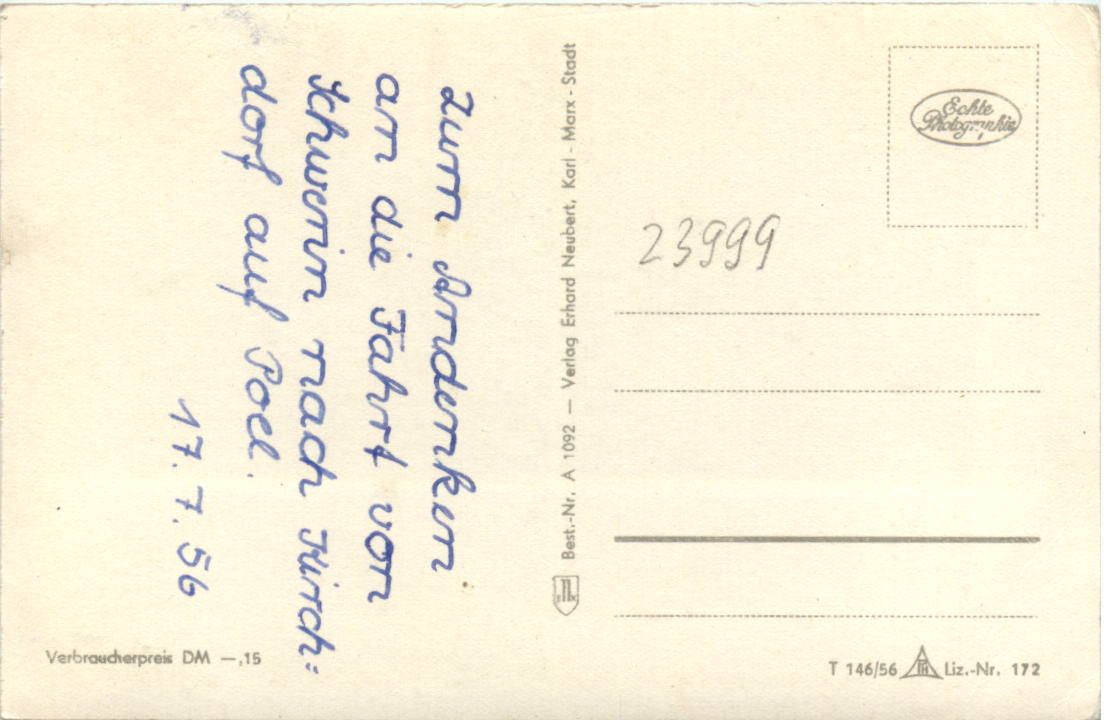 Zum Andenken
an die Fahrt von
Schwerin nach Kirch=
dorf auf Poel.
17.7.56
Verbraucherpreis DM —,15
Best.-Nr. A 1092 — Verlag Erhard Neubert, Karl-Marx-Stadt
Echte
Photographie
23999
T 146/56 Liz.-Nr. 172